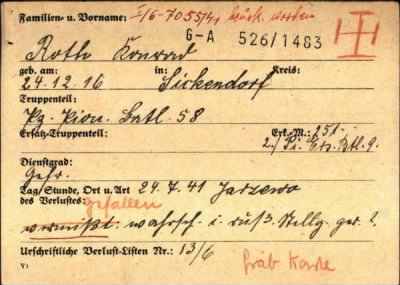 Familien- u. Vorname: I/6-7055/41 rück. westen
G-A 526/1483
Roth Konrad
geb. am: in: Kreis:
24.12.16 Sickendorf
Truppenteil:
Pz. Pion. Batl. 58
Ersatz-Truppenteil: Erk.-M.: 251.
2./Pi. Ers. Btl. 9.
Dienstgrad:
Gefr.
Tag/Stunde, Ort u. Art 24.7.41 Jarzewo
des Verlustes: gefallen
vermißt. wahrsch. i. ruß. Stellg. ger.?
Urschriftliche Verlust-Listen Nr.: 13/6
V1 Grab Karte